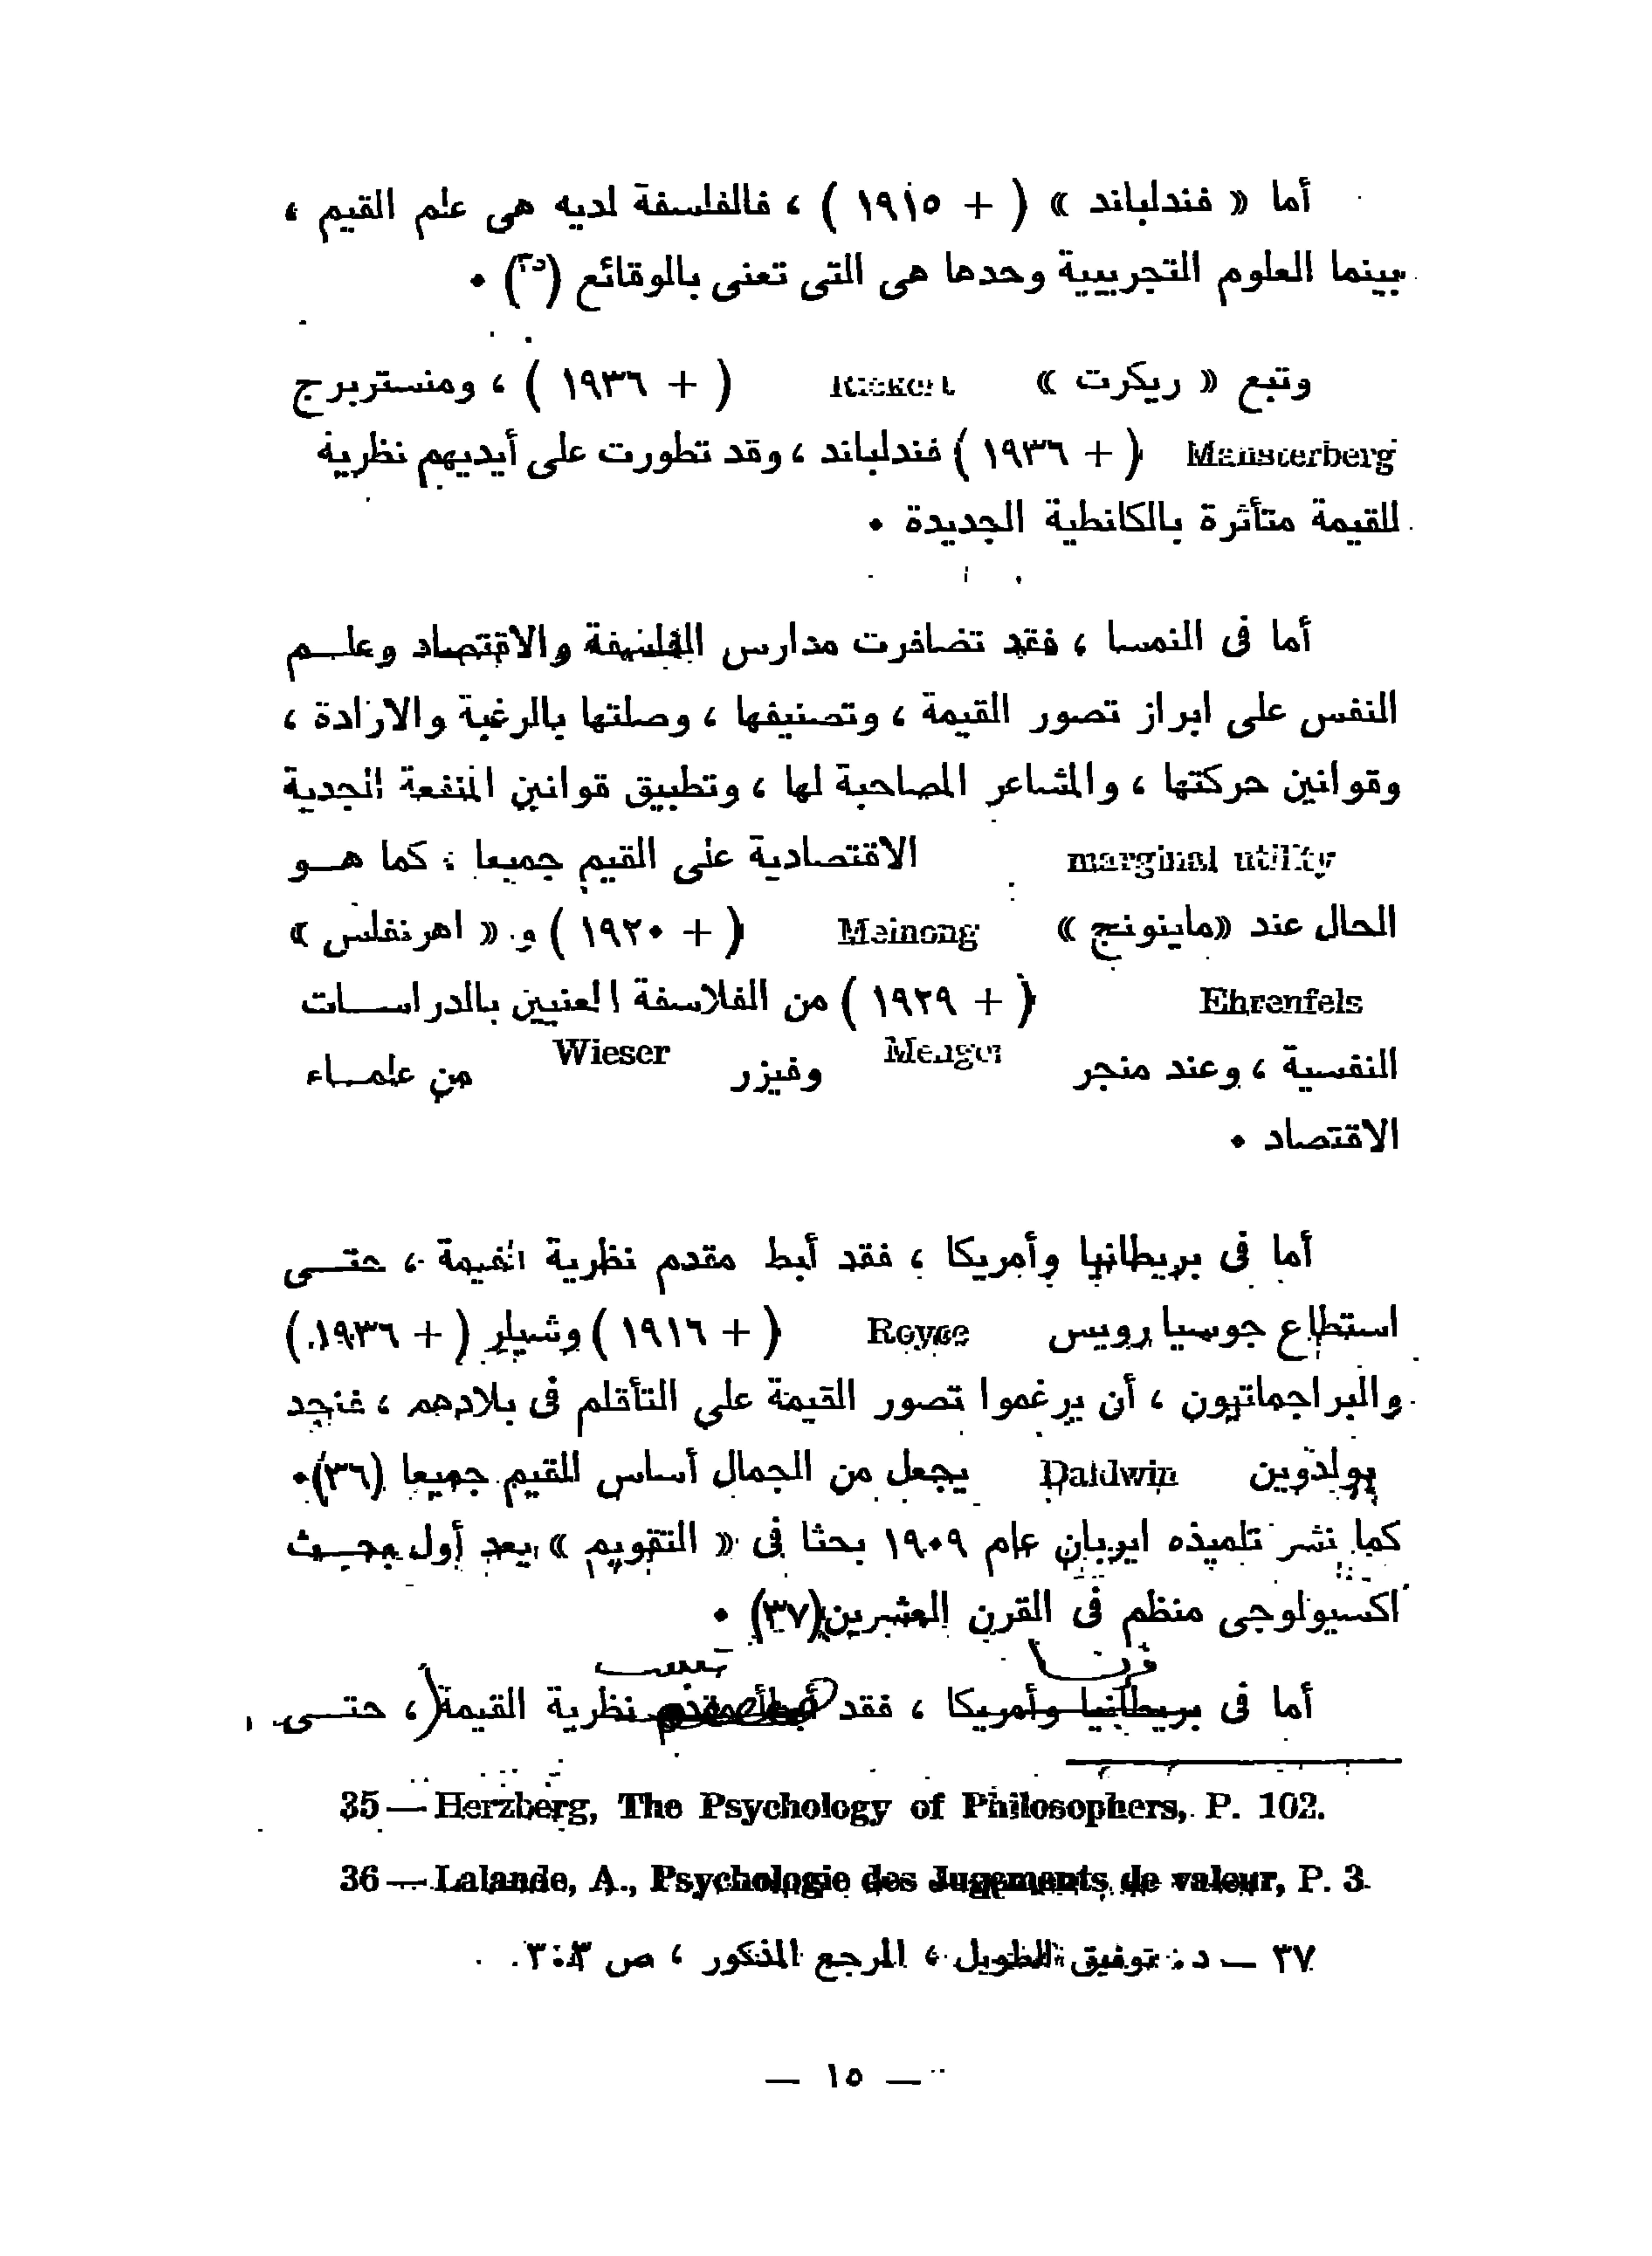 أما « فندلباند » ( + ١٩١٥ ) ، فالفلسفة لديه هى علم القيم ،
بينما العلوم التجريبية وحدها هى التى تعنى بالوقائع (٣٥) ٠
وتبع « ريكرت » Rickert ( + ١٩٣٦ ) ، ومنستربرج
Munsterberg ( + ١٩٣٦ ) فندلباند ، وقد تطورت على أيديهم نظرية
القيمة متأثرة بالكانطية الجديدة ٠
أما فى النمسا ، فقد تضافرت مدارس الفلسفة والاقتصاد وعلــم
النفس على ابراز تصور القيمة ، وتصنيفها ، وصلتها بالرغبة والارادة ،
وقوانين حركتها ، والمشاعر المصاحبة لها ، وتطبيق قوانين المنفعة الجدية
marginal utility الاقتصادية على القيم جميعا ، كما هــو
الحال عند «ماينونج » Meinong ( + ١٩٢٠ ) و « اهرنفلس »
Ehrenfels ( + ١٩٢٩ ) من الفلاسفة المعنيين بالدراســات
النفسية ، وعند منجر Menger وفيزر Wieser من علمــاء
الاقتصاد ٠
أما فى بريطانيا وأمريكا ، فقد أبط مقدم نظرية القيمة ، حتــى
استطاع جوسيا رويس Royce ( + ١٩١٦ ) وشيلر ( + ١٩٣٦ )
والبراجماتيون ، أن يرغموا تصور القيمة على التأقلم فى بلادهم ، فنجد
بولدوين Baldwin يجعل من الجمال أساس القيم جميعا (٣٦)٠
كما نشر تلميذه ايربان عام ١٩٠٩ بحثا فى « التقويم » يعد أول بحــث
اكسيولوجى منظم فى القرن العشرين(٣٧) ٠
أما فى بريطانيا وأمريكا ، فقد أبطأ مقدم نظرية القيمة ، حتــى
35 — Herzberg, The Psychology of Philosophers, P. 102.
36 — Lalande, A., Psychologie des Jugements de valeur, P. 3
٣٧ — د٠ توفيق الطويل ، المرجع المذكور ، ص
— ١٥ —